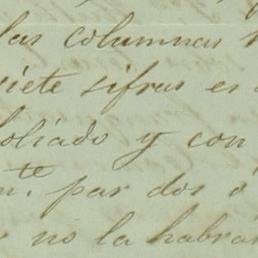 las columnas
siete sifras es
foliado y con
te. par dos ó
no la habrá